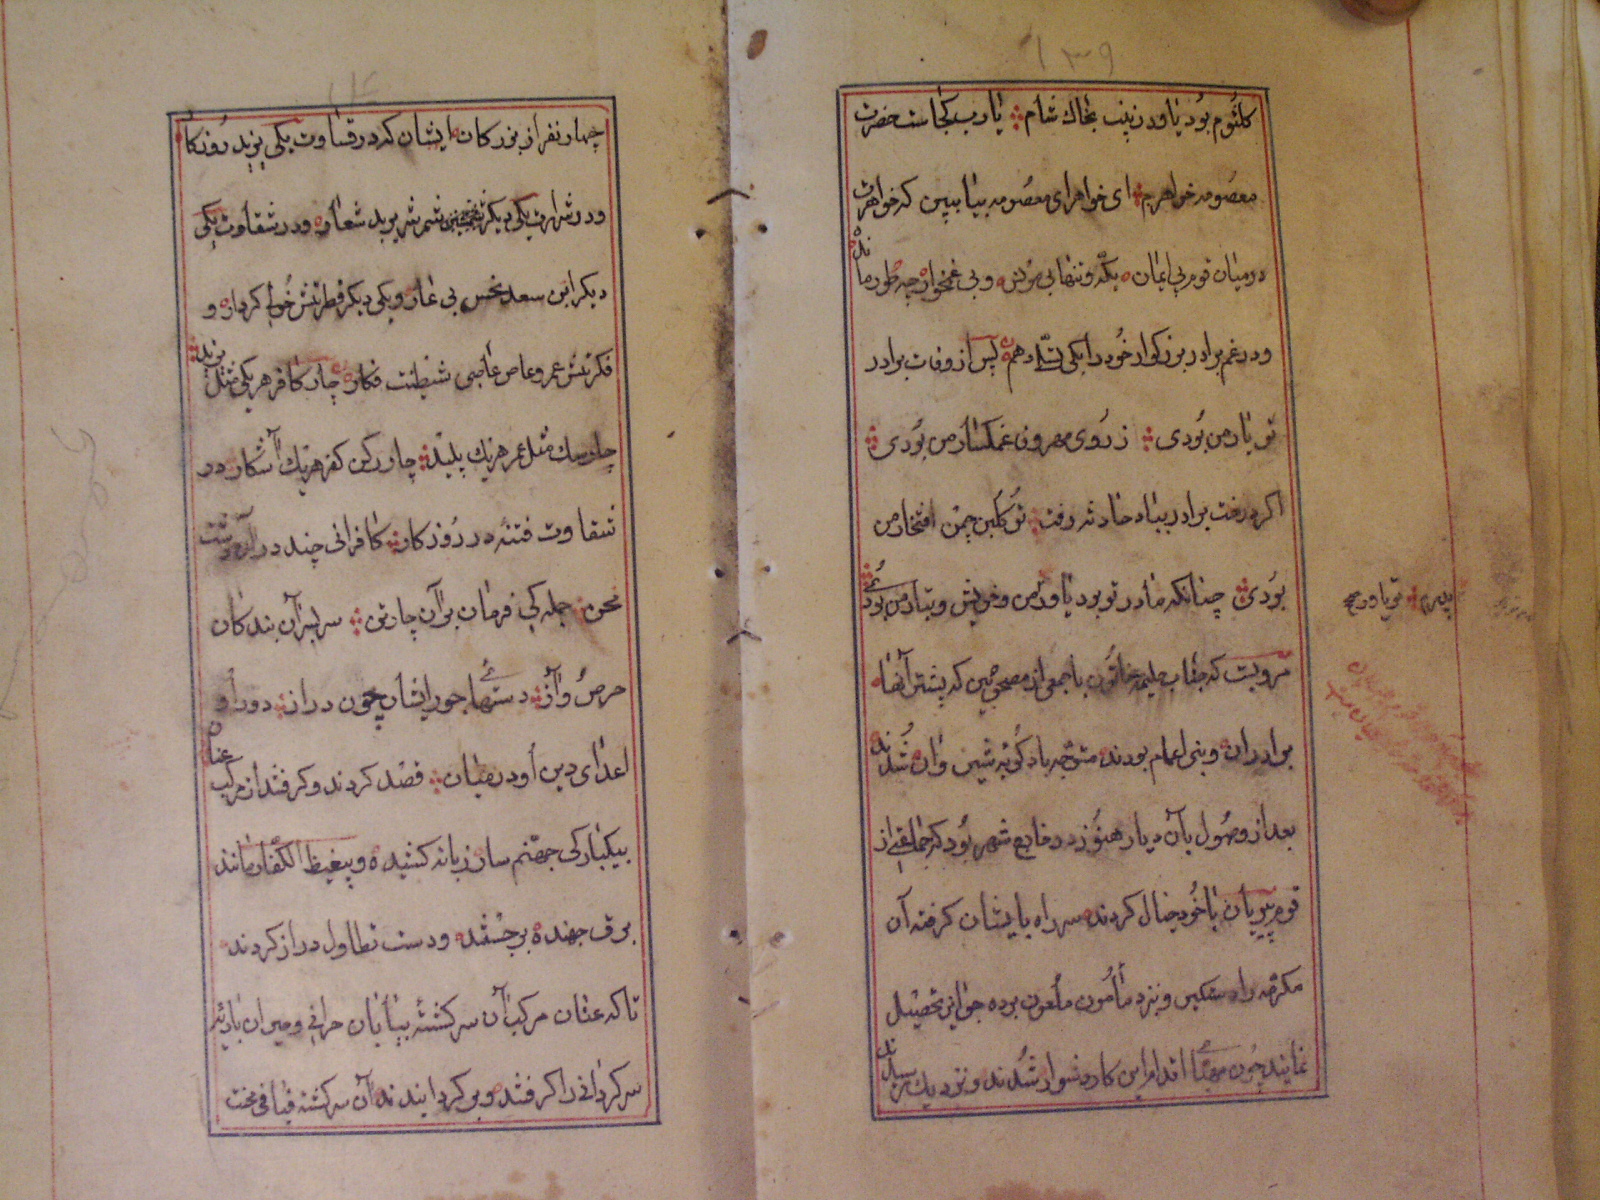 ۱۳۹
کلثوم بود یاور زینب بخاک شام یارب کجاست حضرت
معصومه خواهرم ای خواهر ای معصومه بیا ببین که خواهرت
در میان قوم بی ایمان یکه و تنها بی مونس و بی غمخوار چه طور مانده
و در غم برادر بزرگوار خود را بکی تسلی دهم پس از وفات برادر
تو یار من بودی ز روی مهر و وفا غمگسار من بودی
اگر درخت برادر بباد حادثه رفت تو گلبن چمن افتخار من
بودی چنانکه مادر تو بود یاور من و خویش و تبار من بودی
مرویست که جناب حلیمه خاتون با جمعی از که پیشتر آنها
برادران و بنی اعمام بودند متوجه بادکوبه شیز وان شدند
بعد از وصول بآن دیار هنوز در خارج شهر بود که جمله از
قوم بی با خود خیال کردند سر راه بایشان گرفته آن
مکرمه را دستگیر و بنزد مأمون ملعون برده جوایز تحصیل
نمایند چون مهیا اقدام این کار سوار شدند و نزدیک رسیدند
چهار نفر از بزرکان ایشان که در قساوت یکی یزید روزکار
و در شرارت یکی دیکر شمر شریر بد شعار و در شقاوت یکی
دیکر ابن سعد نحس بی عار و یکی دیکر خولی کردار و
فکرتش عمرو عاص عاصی شیطنت فکار چار کافر هر یکی مثل یزید
چار سک مثل عمر هر یک پلید چار رکن کفر هر یک آشکار در
شقاوت فتنه در روزکار کافرانی چند در آن دشت
محن جمله کی فرمان بر آن چار تن سر بسر آن بندکان
حرص و آز دستهای جور ایشان چون دراز دور او
اعدای دین او در میان قصد کردند و کرفتند از مرکب عنان
بیکبارکی جهنم سان زبانه کشیده و لیغیظ الکفار مانند
برق جهنده برجستند و دست تطاول دراز کردند
تا که عنان مرکب آن سرکشته بیابان حرانی و حیران بادیه
سرکردانی را کرفتند و برکردانیدند آن سرکشته فیافی محنت